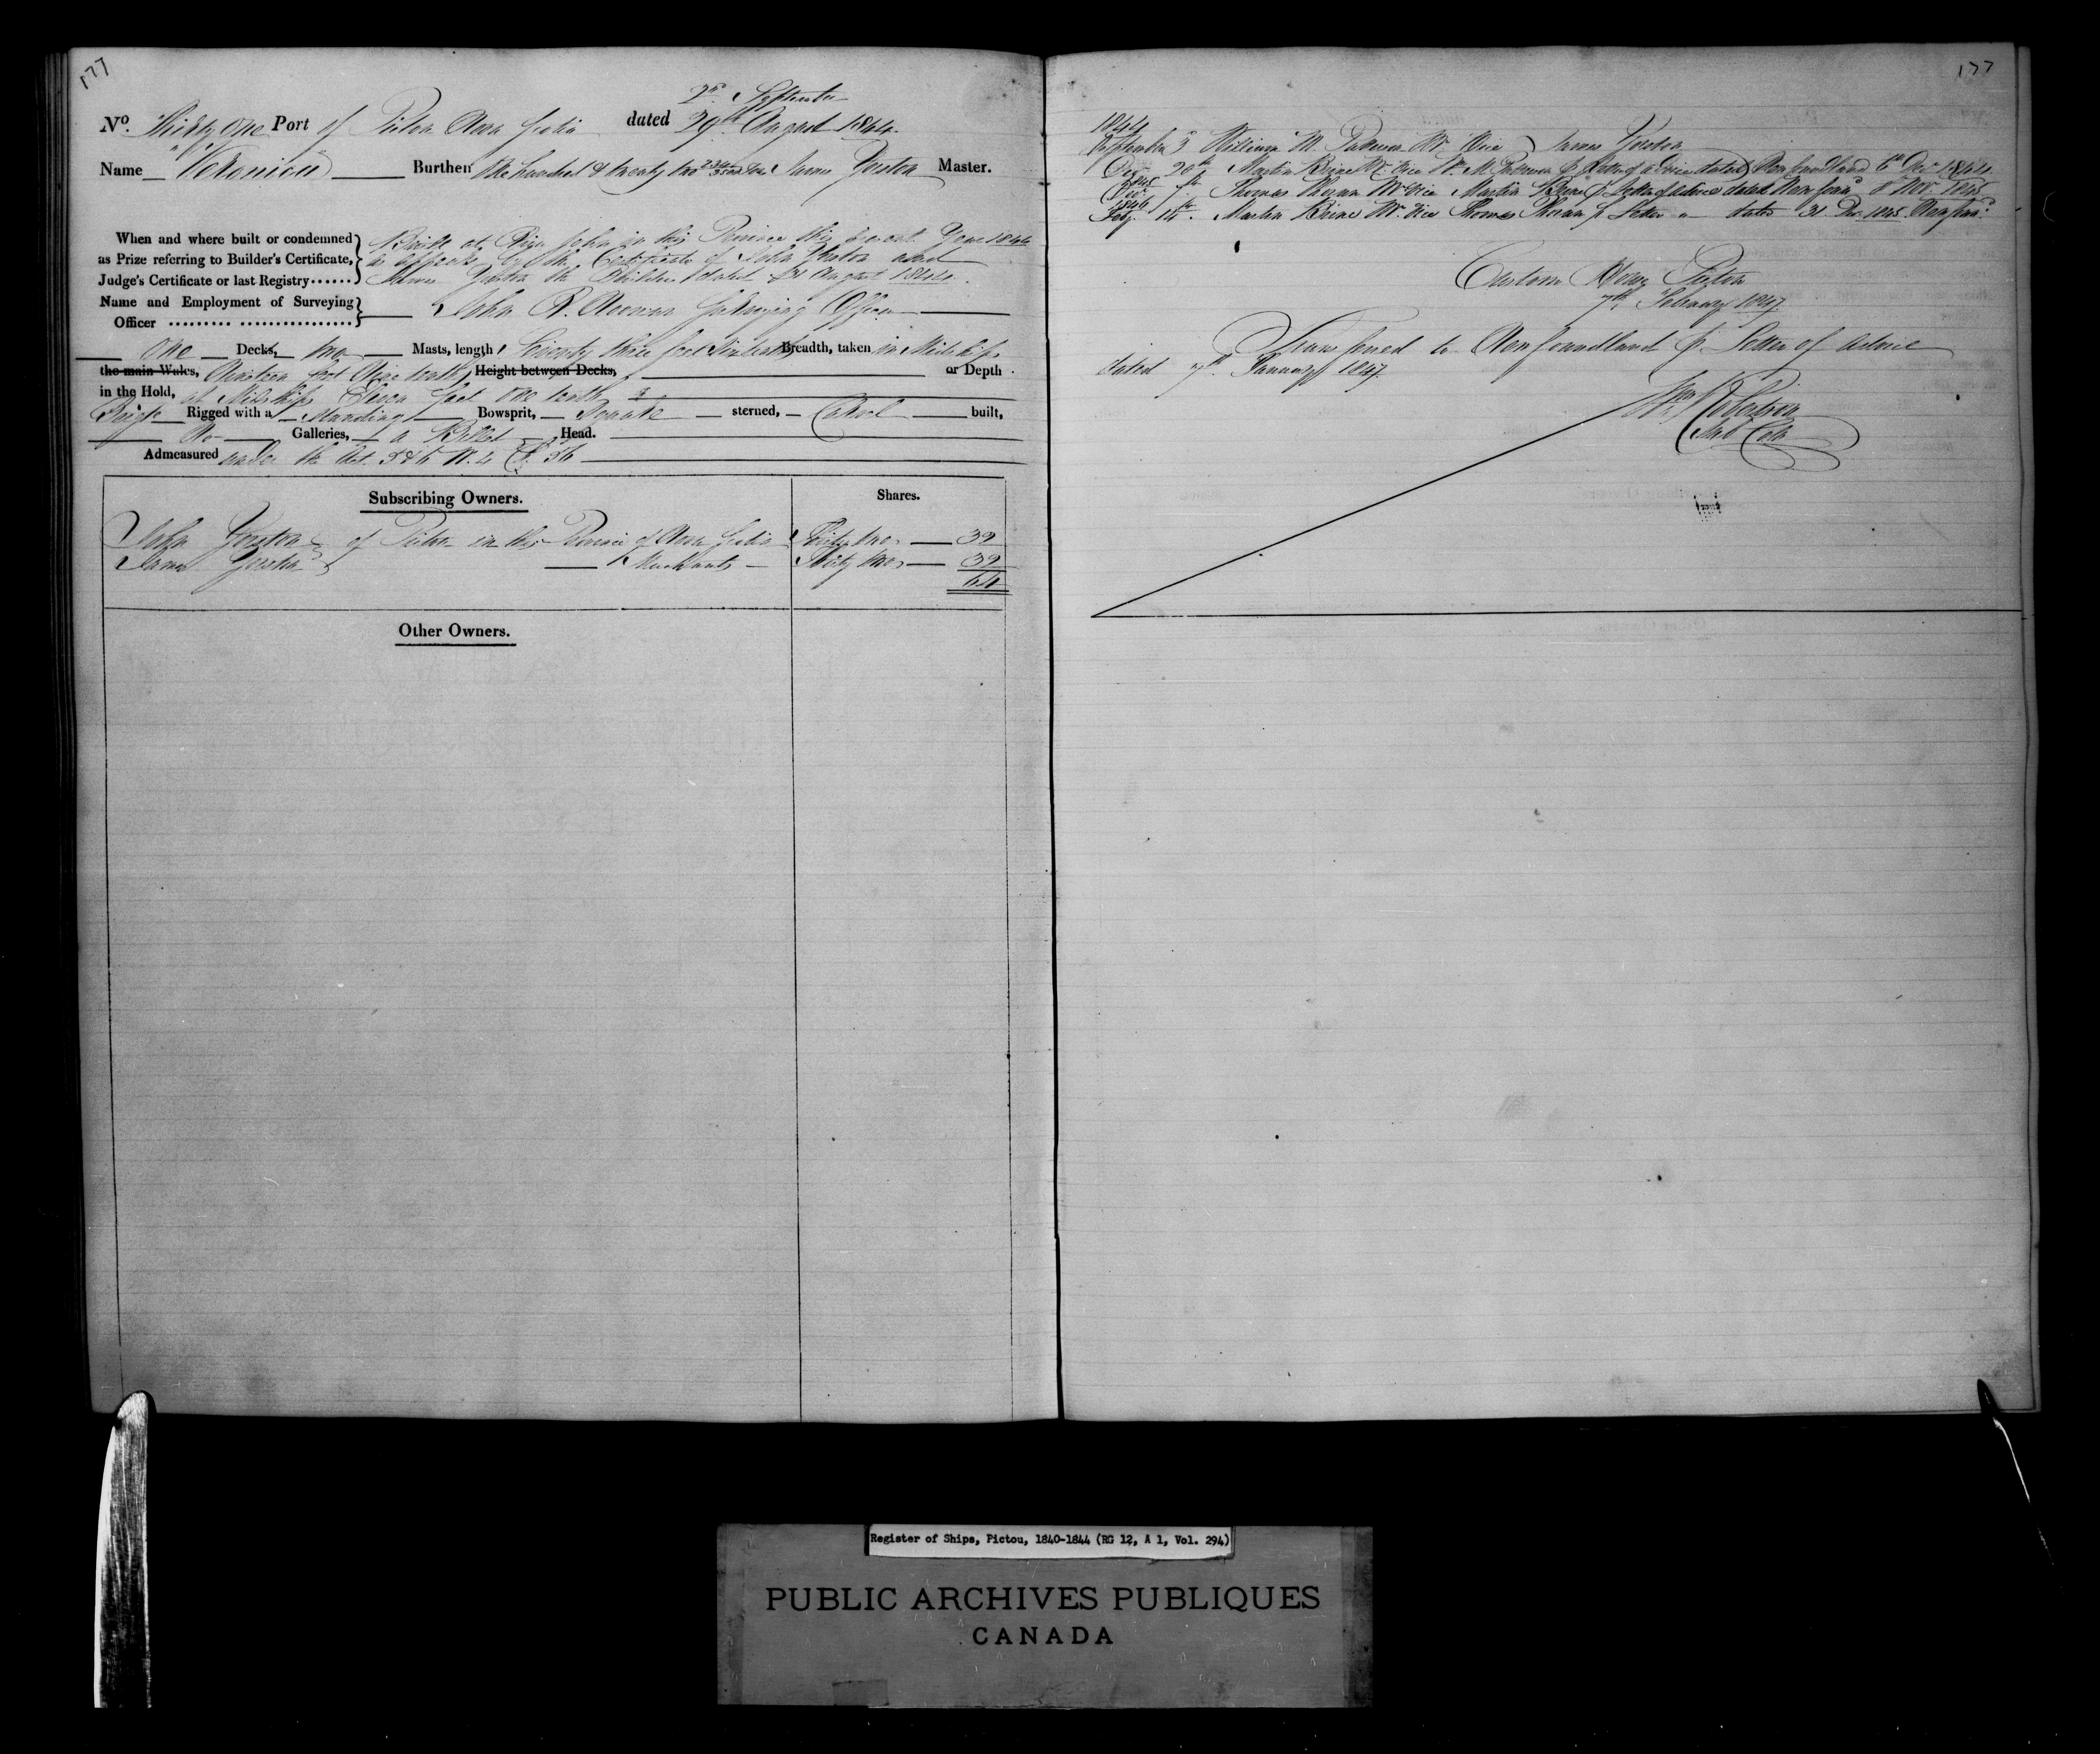 177
2nd September
No. Thirty One Port of Pictou Nova Scotia dated 29th August 1844.
Name Burthen One hundred & twenty two James Yorston Master.
When and where built or condemned as Prize referring to Builder's Certificate, Judge's Certificate or last Registry ......
Built at River John in this Province this present Year 1844
as appears by the Certificate of John Yorston and
James Yorston the Builders dated August 1844.
Name and Employment of Surveying Officer ......... ................ John R. Noonan Surveying Officer
One Decks, two Masts, length, Seventy three feet Breadth, taken in Midships
the main Wales, Nineteen feet Nine tenths Height between Decks, or Depth
in the Hold, at Midships Eleven feet One tenth
Brige Rigged with a Standing Bowsprit, sterned, Carvel built,
No Galleries, a Billet Head.
Admeasured under the Act 5 & 6 W. 4 C. 56
Subscribing Owners. Shares.
John Yorston of Pictou in the Province of Nova Scotia Thirty two 32
James Yorston Merchants Thirty two 32
64
Other Owners.
177
1844
September 3 William M. Mr. Vice James Yorston
Dec 20th Martin Brine Mr. Vice Wm. M. p. Letter of advice dated Newfoundland 6th Dec 1844
1845
7th Thomas Mr. Vice Martin Brine p. Letter of advice dated Newfound 8 Nov 1845
1846
Feby. 14. Martin Brine Mr. Vice Thomas p. Letter dated 31 Dec. 1845 Newfound
Custom House Pictou
7th February 1847.
Transferred to Newfoundland p. Letter of advice
dated 7th January 1847.
Wm Robertson
Sub Coll
Register of Ships, Pictou, 1840-1844 (RG 12, A 1, Vol. 294)
PUBLIC ARCHIVES PUBLIQUES
CANADA